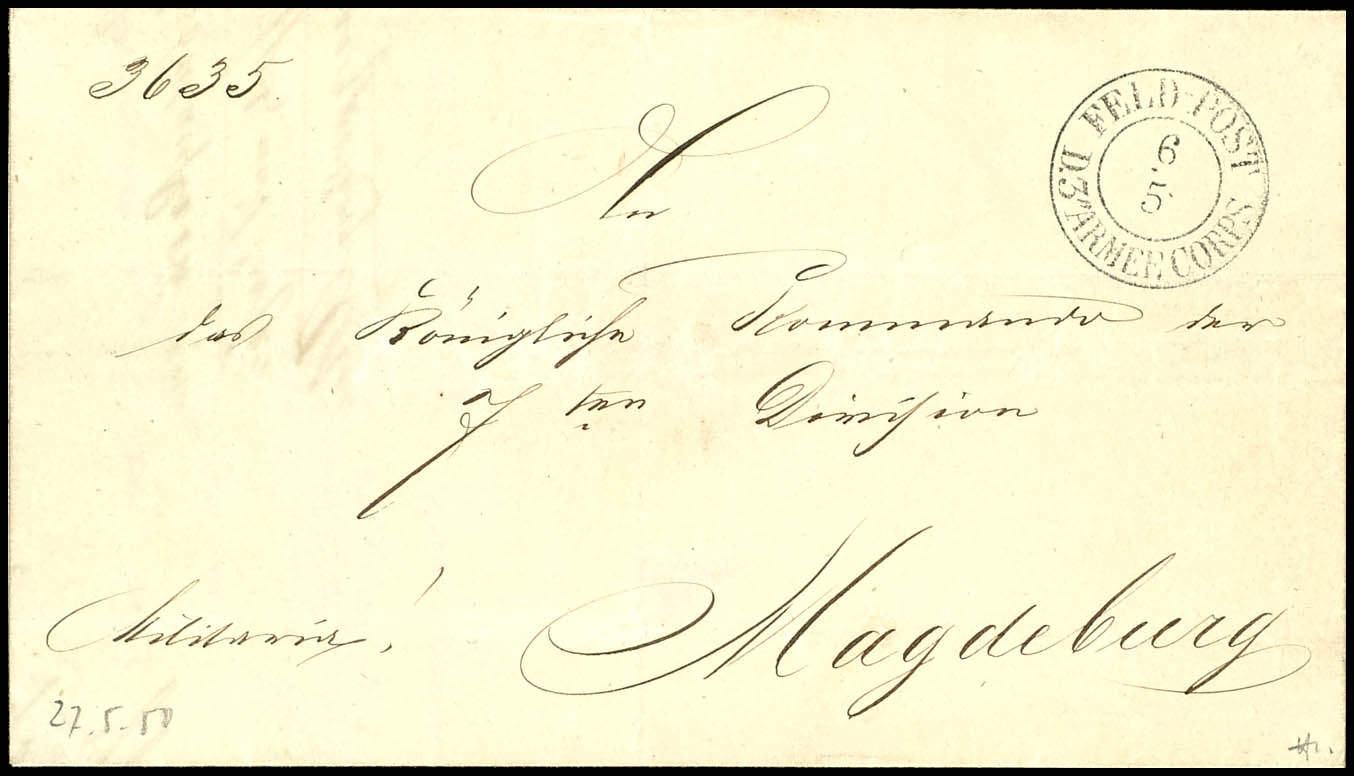 3635.
FELD-POST
6
5
D. 3ᵗ ARMEE CORPS
An
das Königliche Kommando der
7 ten Division
Militaria,
Magdeburg
27.5.50